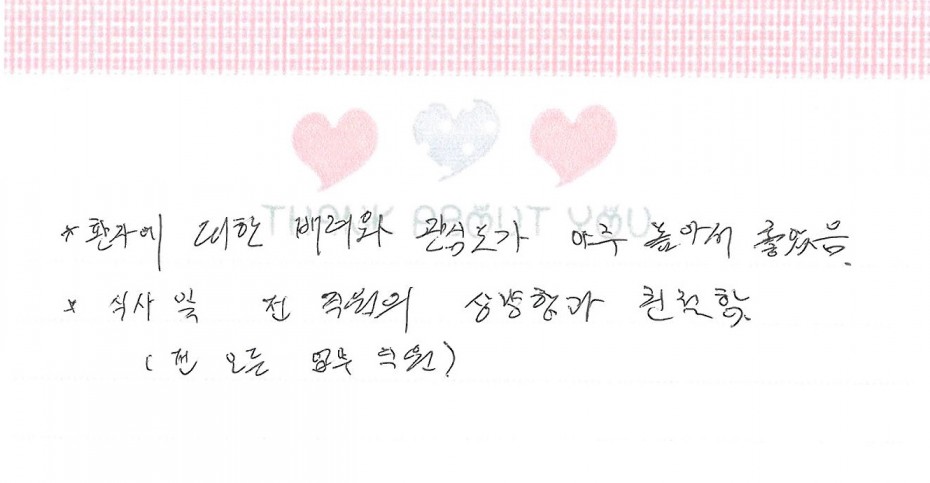 THANK ABOUT YOU
* 환자에 대한 배려와 관심도가 아주 높아서 좋았음.
* 식사 및 전 직원의 상냥함과 친절함.
( 전 모든 업무 직원 )